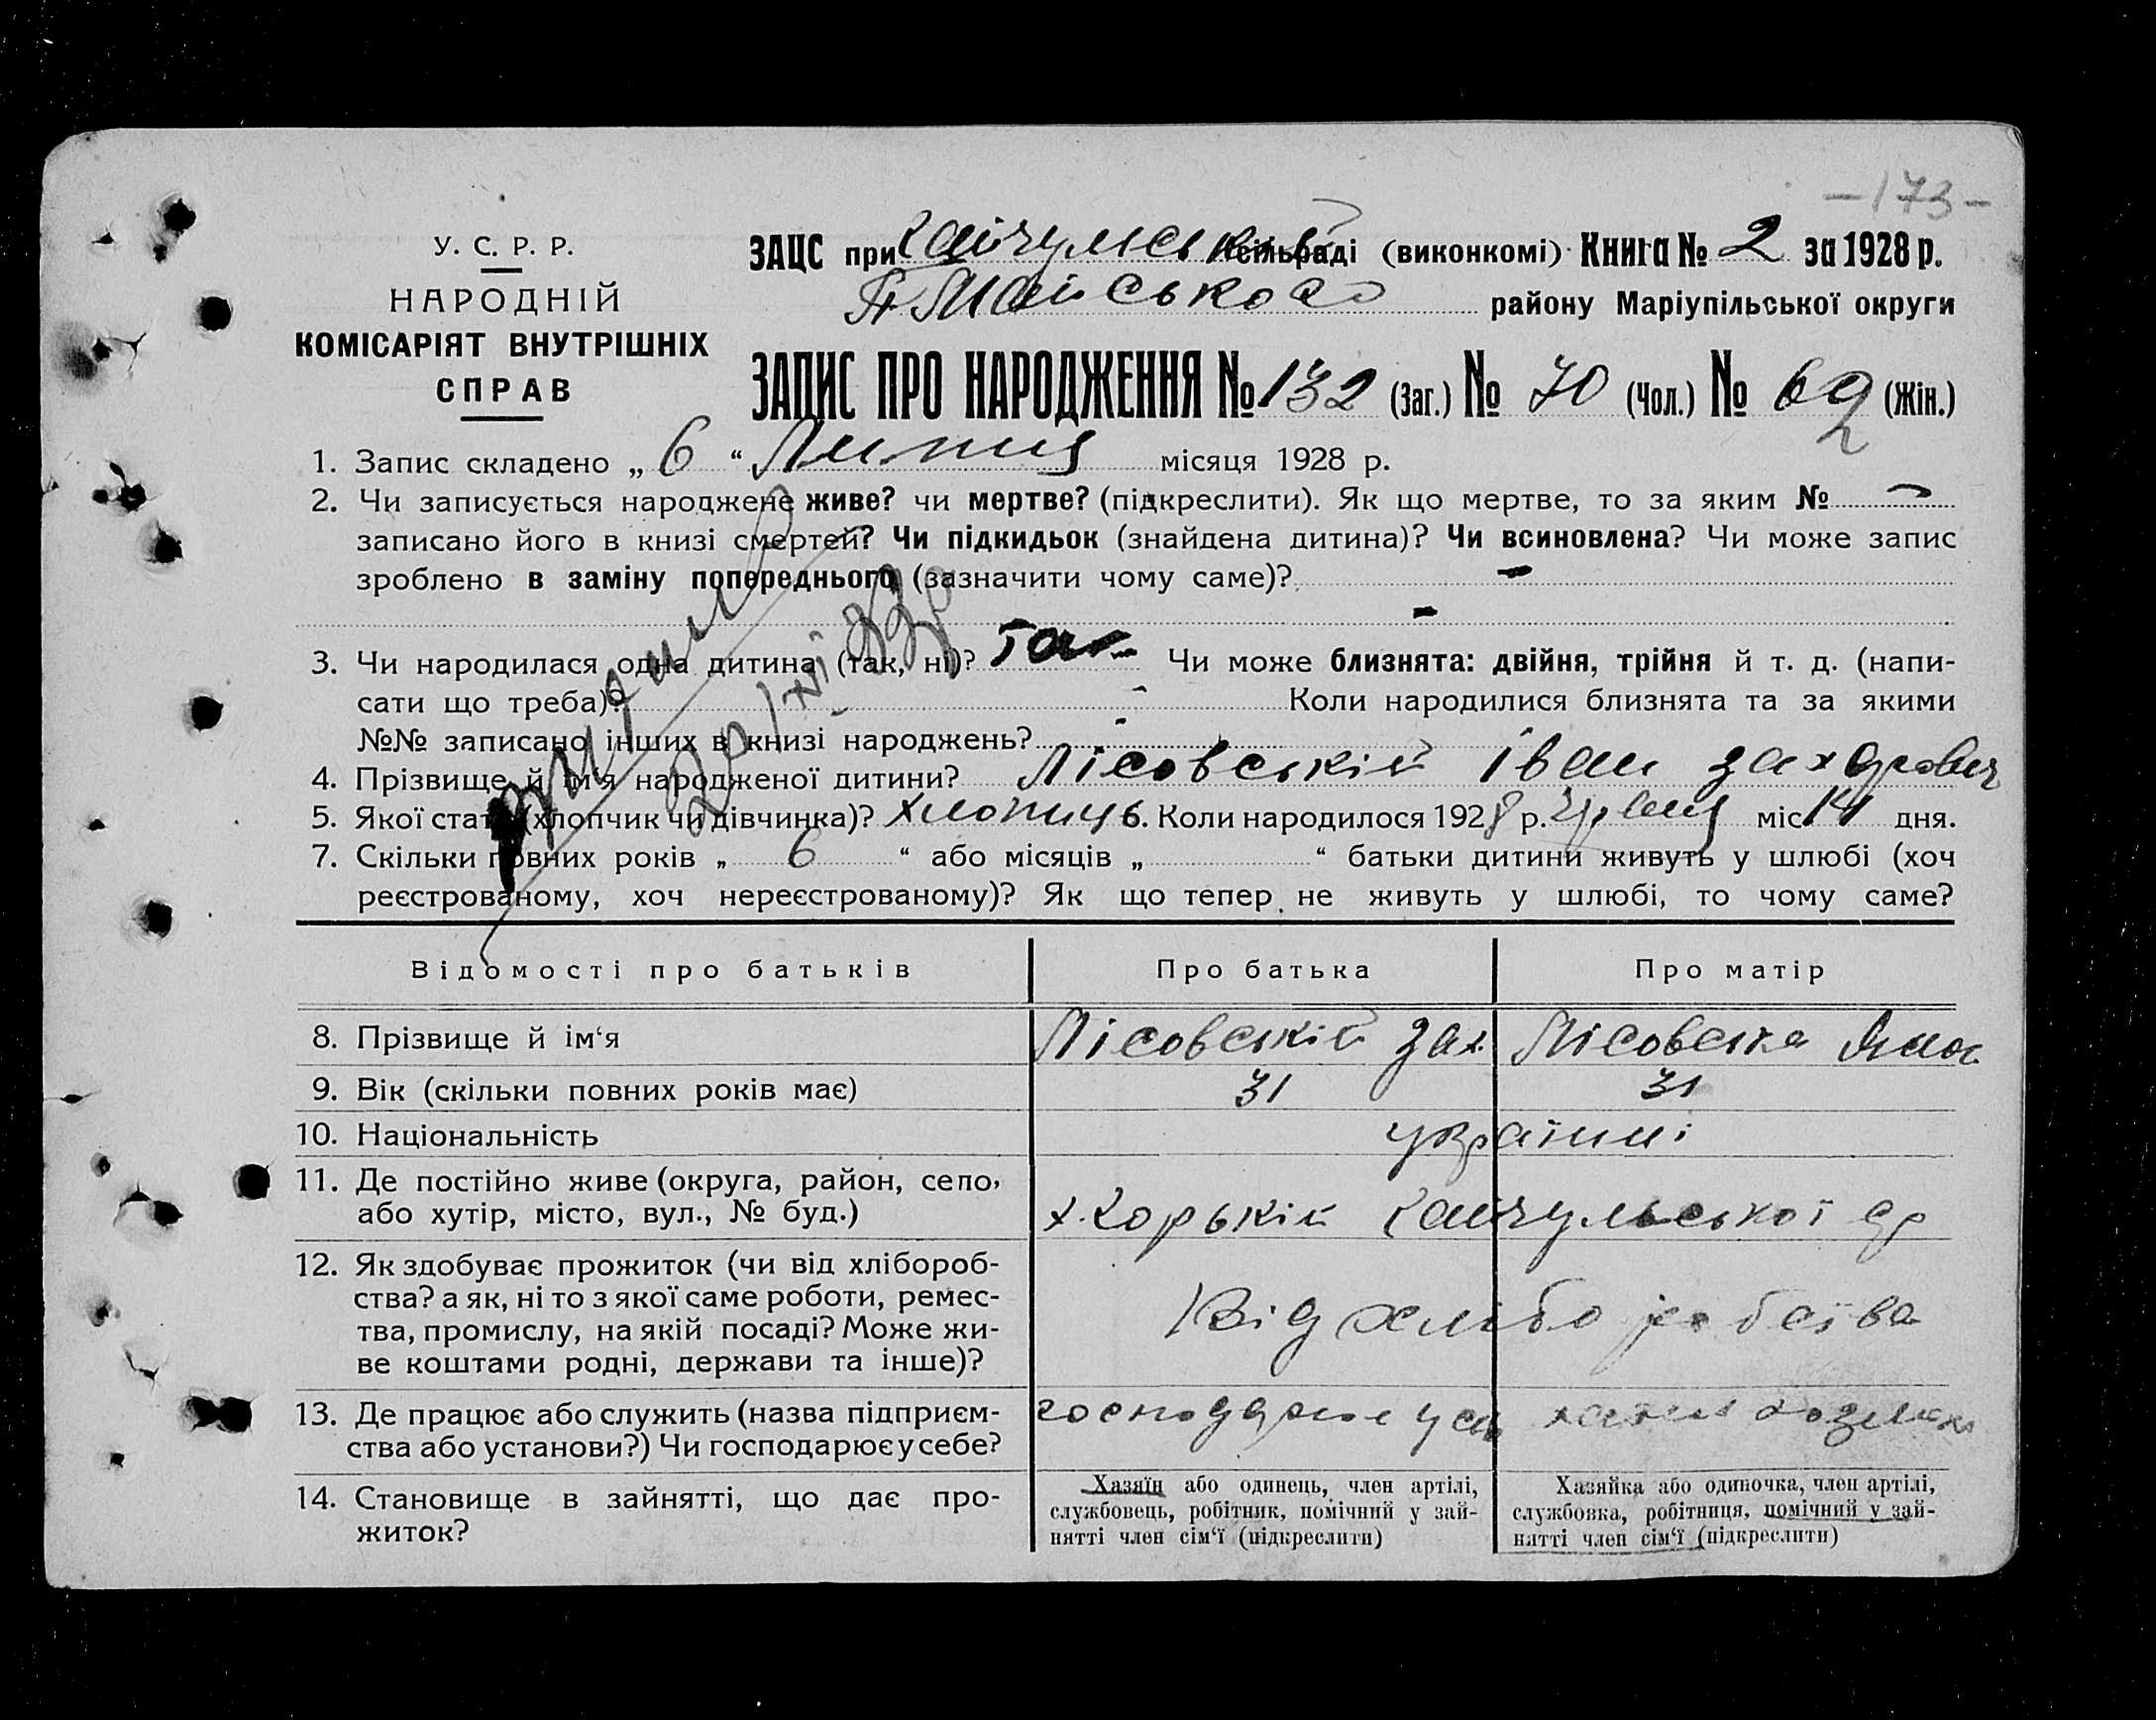 -173-
У. С. Р. Р.
НАРОДНІЙ
КОМІСАРІЯТ ВНУТРІШНІХ
СПРАВ
ЗАЦС при Гайчульській сільраді (виконкомі) Книга № 2 за 1928 р.
району Маріупільської округи
ЗАПИС ПРО НАРОДЖЕННЯ № 132 (Заг.) № 70 (Чол.) № 62 (Жін.)
1. Запис складено „ 6 “ Липня місяця 1928 р.
2. Чи записується народжене живе? чи мертве? (підкреслити). Як що мертве, то за яким № -
записано його в книзі смертей? Чи підкидьок (знайдена дитина)? Чи всиновлена? Чи може запис
зроблено в заміну попереднього (зазначити чому саме)? -
-
3. Чи народилася одна дитина (так, ні)? Так Чи може близнята: двійня, трійня й т. д. (напи-
сати що треба)? - Коли народилися близнята та за якими
№№ записано інших в книзі народжень? -
4. Прізвище й ім'я народженої дитини? Лісовський Іван Захарович
5. Якої статі (хлопчик чи дівчинка)? хлопиць 6. Коли народилося 1928 р. червня міс 14 дня.
7. Скільки повних років „ 6 “ або місяців „ “ батьки дитини живуть у шлюбі (хоч
реєстрованому, хоч нереєстрованому)? Як що тепер не живуть у шлюбі, то чому саме?
Відомості про батьків Про батька Про матір
8. Прізвище й ім‘я Лісовський Зах. Лісовська
9. Вік (скільки повних років має) 31 31
10. Національність українці
11. Де постійно живе (округа, район, село,
або хутір, місто, вул., № буд.) х. Гайчульської
12. Як здобуває прожиток (чи від хлібороб-
ства? а як, ні то з якої саме роботи, ремес-
тва, промислу, на якій посаді? Може жи-
ве коштами родні, держави та інше)? Від хліборобства
13. Де працює або служить (назва підприєм-
ства або установи?) Чи господарює у себе? господарює у себе
14. Становище в зайнятті, що дає про-
житок?
Хазяїн або одинець, член артілі,
службовець, робітник, помічний у зай-
нятті член сім‘ї (підкреслити)
Хазяйка або одиночка, член артілі,
службовка, робітниця, помічний у зай-
нятті член сім‘ї (підкреслити)